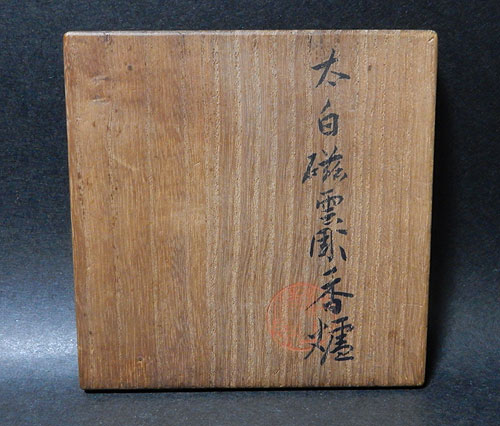 太白磁雲彫香爐